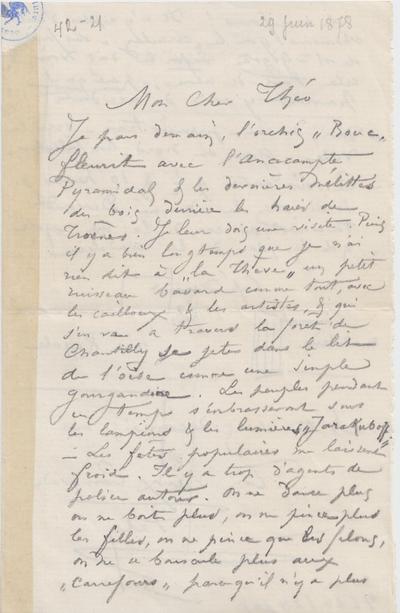 42-21
29 juin 1878
Mon Cher Théo
Je pars demain, l'orchis "Bouc"
fleurit avec l'Anacampte
Pyramidal & les dernières Mélittes
des bois derrière les haies de
Troènes. Je leur dois une visite. Puis
il y a bien longtemps que je n'ai
rien dit à "la Thève" un petit
ruisseau bavard comme tout avec
les cailloux & les artistes, & qui
s'en va à travers la forêt de
Chantilly se jeter dans le lit
de l'Oise comme une simple
gourgandine. Les peuples pendant
ce temps s'embrasseront sous
les lampions & les lumières "Jarakuboff"
— Les fêtes populaires me laissent
froid. Il y a trop d'agents de
police autour. On ne danse plus
on ne boit plus, on ne pince plus
les filles, on ne pince que les filous,
on ne bouscule plus aux
"carrefours" parcequ'il n'y a plus